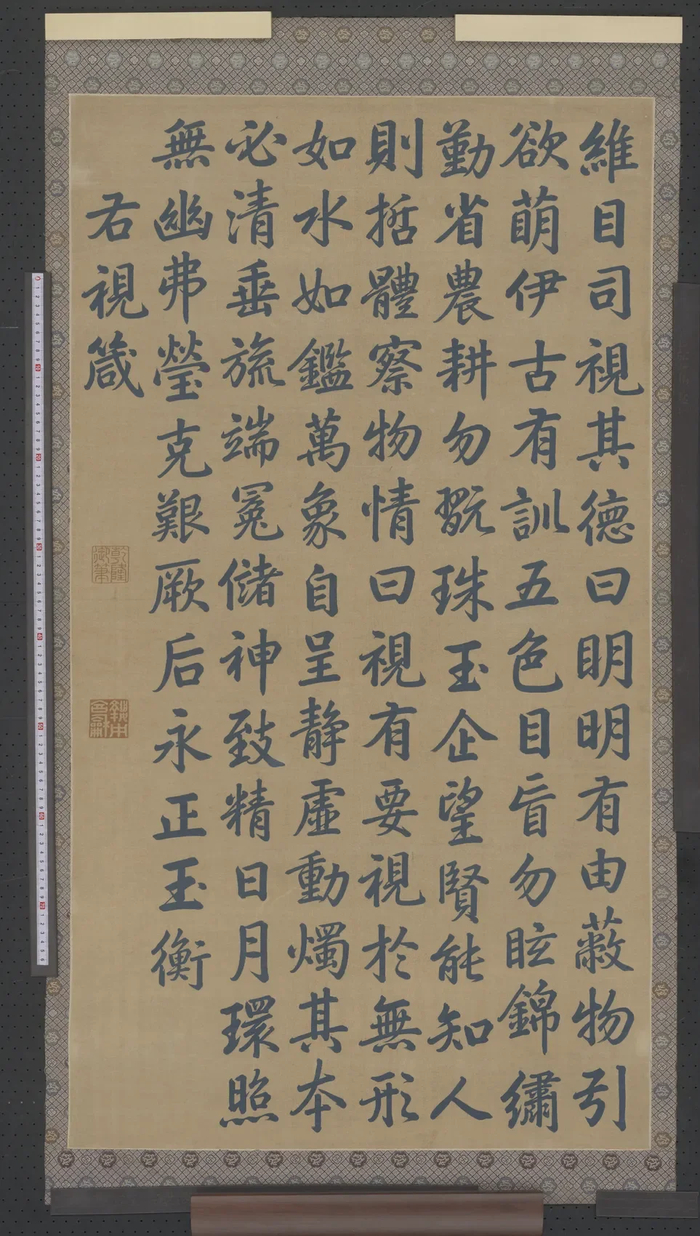 維目司視其德曰眀明有由蔽物引
欲萌伊古有訓五色目盲勿眩錦繡
勤省農耕勿翫珠玉企望賢能知人
則哲體察物情曰視有要視於無形
如水如鑑萬象自呈静虛動燭其本
必清垂旒端冕儲神致精日月環照
無幽弗瑩克艱厥后永正玉衡
右視箴
乾隆御筆